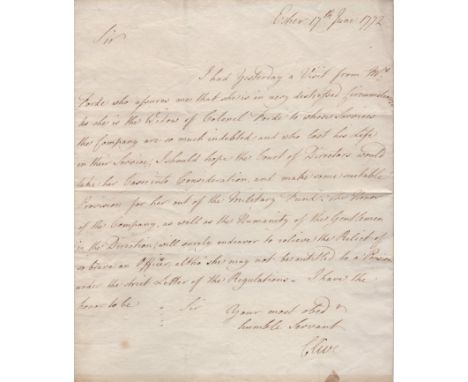 Esher 17th June 1772
Sir
I had Yesterday a Visit from Mrs
Forde who assures me that she is in very distressed Circumstances
As she is the Widow of Colonel Forde to whose Services
the Company are so much indebted and who lost his Life
in their Service, I should hope the Court of Directors would
take her Case into Consideration, and make some suitable
Provision for her out of the Military Fund. The Honor
of the Company, as well as the Humanity of the Gentlemen
in the Direction will surely endeavor to relieve the Relict of
so brave an Officer, altho' she may not be entitled to a Pension
under the strict Letter of the Regulations - I have the
honor to be
Sir
Your most obed t
humble Servant
Clive